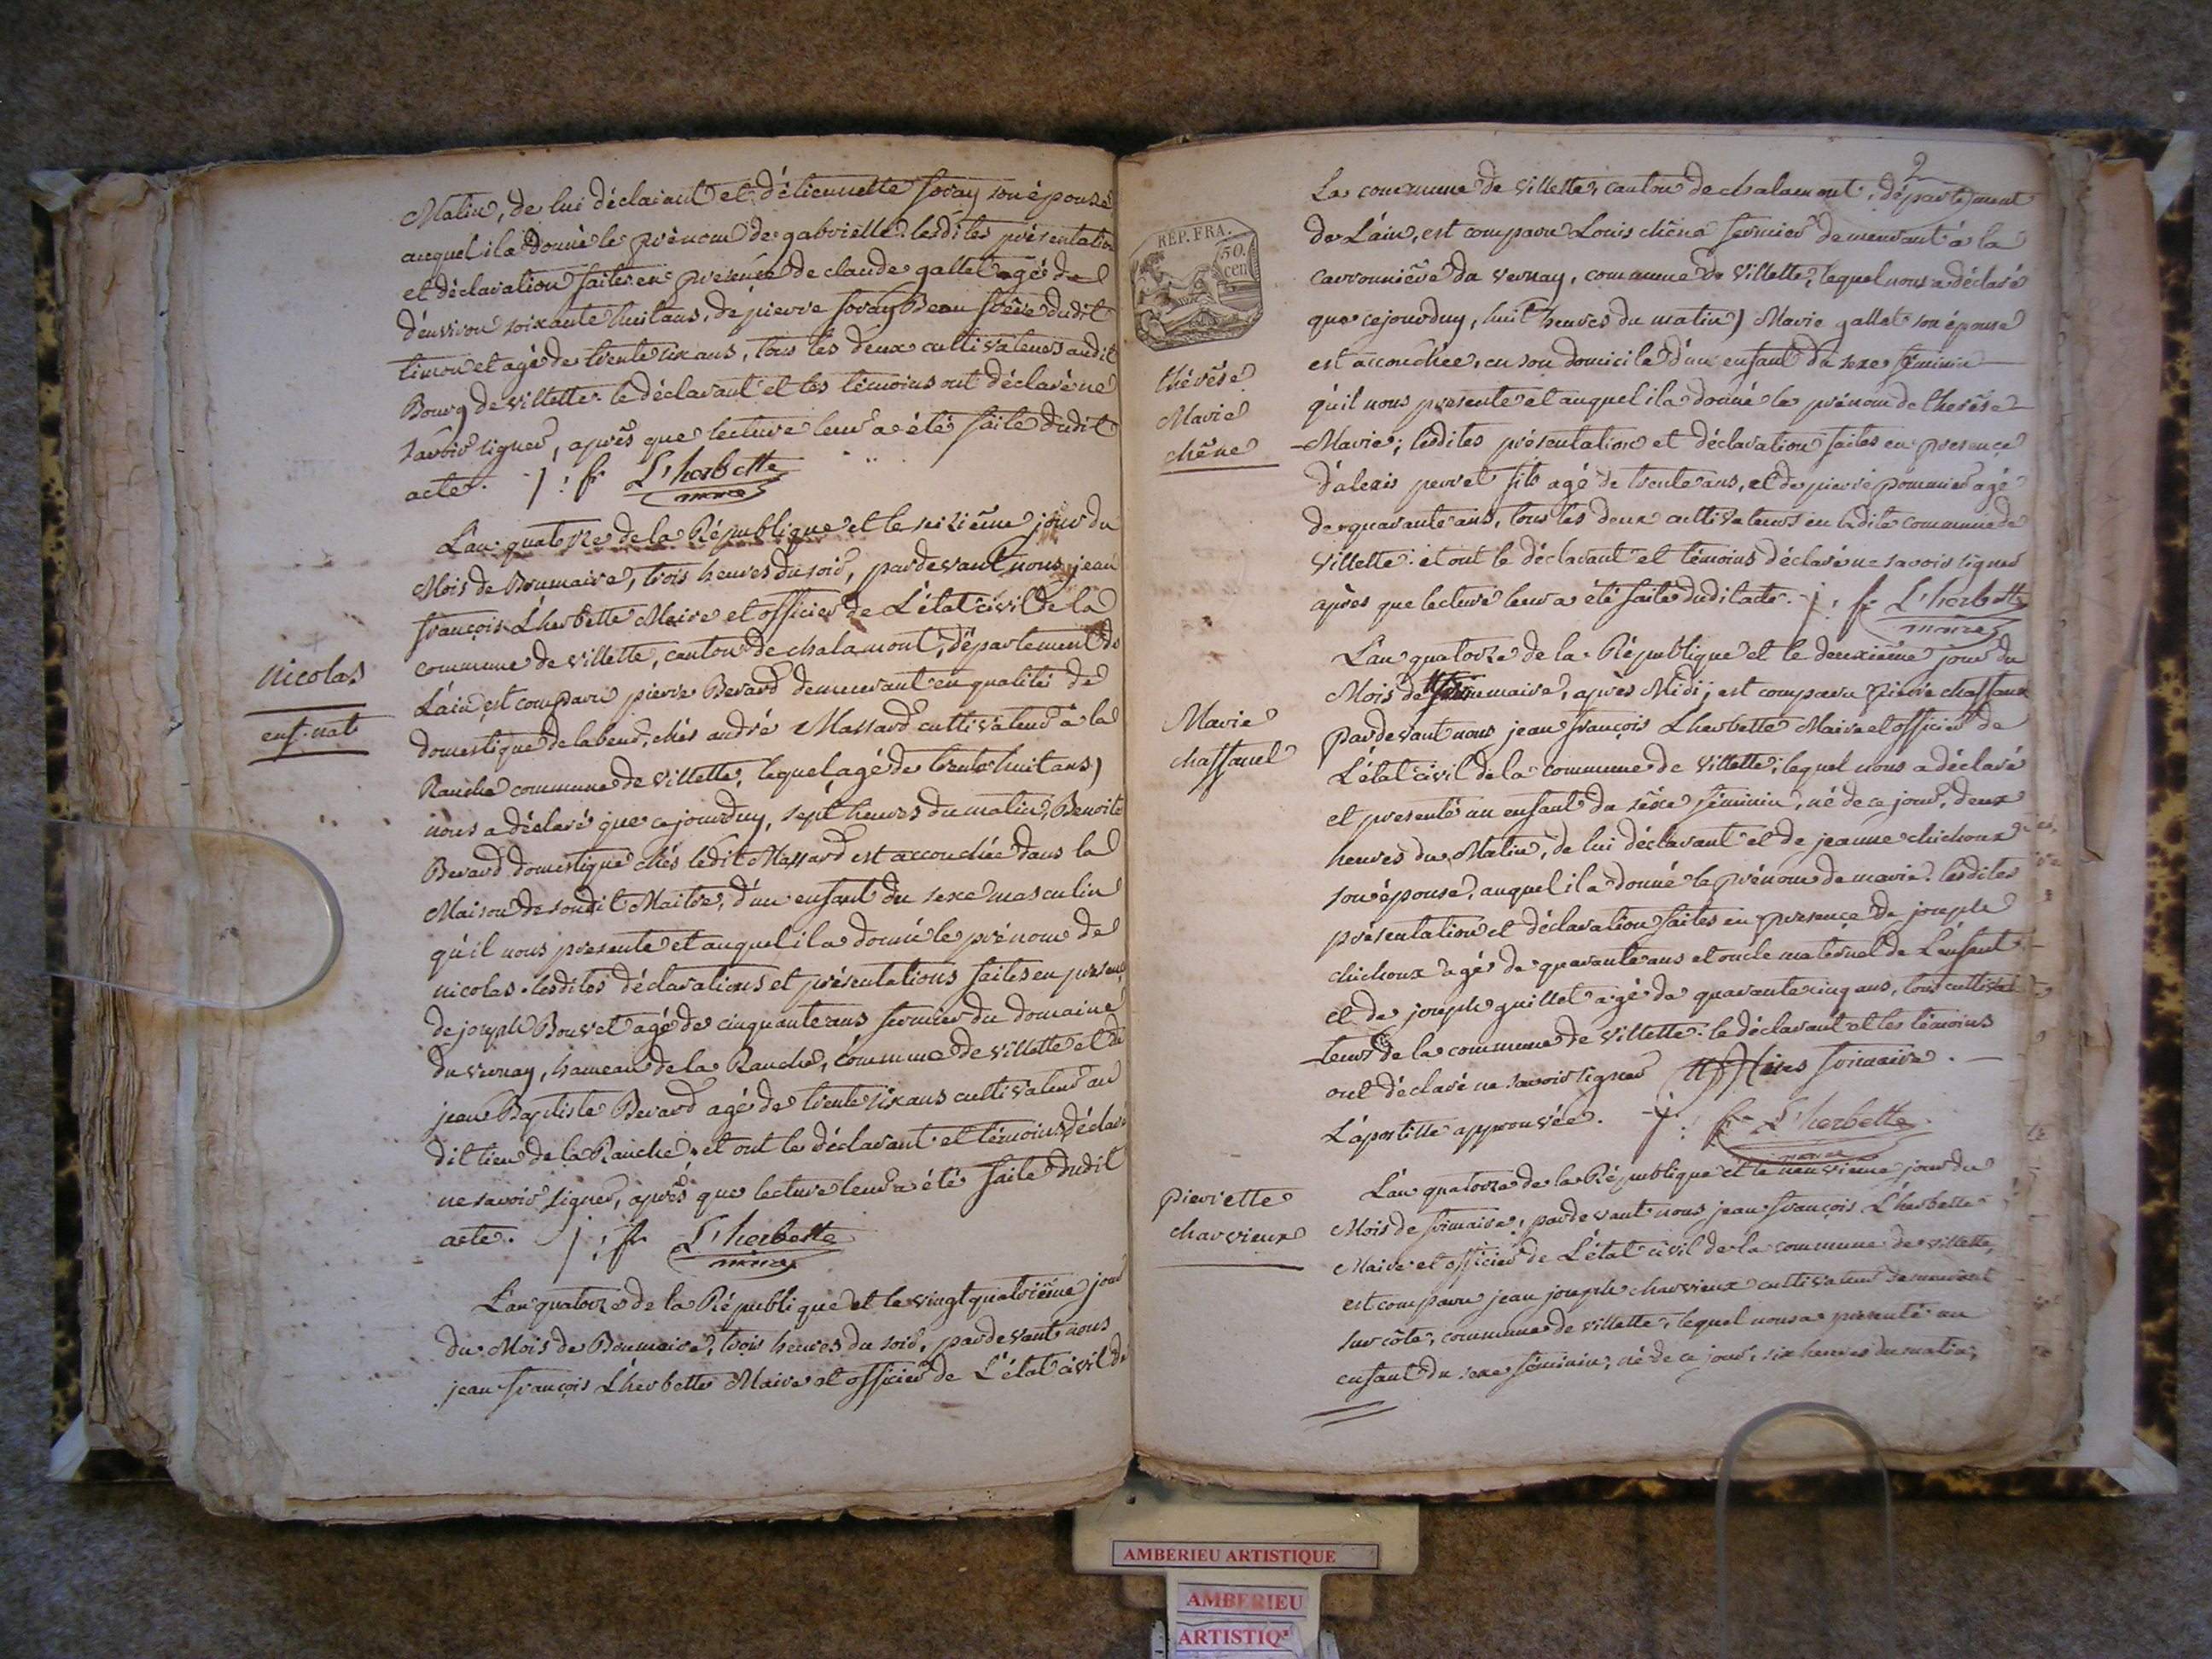 Matin, de lui déclarant et d'étiennette foray son épouse
auquel il a donné le prénom de gabrielle. lesdites présentation
et déclaration faites en présence de claude gallet agé de
d'environ soixante huit ans, de pierre foray Beau frêre dudit
timon et agé de trente six ans, tous les deux cultivateurs audit
Bourg de villette. le déclarant et les témoins ont déclaré ne
savoir signer, après que lecture leur a été faite dudit
acte. j: fr L'herbette
maire
L'an quatorze de la République et le seizième jour du
Mois de Brumaire, trois heures du soir, pardevant nous jean
françois Lherbette Maire et officier de L'état civil de la
commune de villette, canton de chalamont, département de
nicolas
enf. nat
L'ain est comparu pierre Berard demeurant en qualité de
domestique de labeur, chés andré Massard cultivateur à la
Ranche commune de villette, lequel agé de trente huit ans,
nous a déclaré que cejourduy, sept heures du matin, Benoite
Berard domestique chés ledit Massard est accouchée dans la
Maison de sondit Maitre, d'un enfant du sexe masculin
qu'il nous presente et auquel il a donné le prénom de
nicolas. lesdites déclarations et présentations faites en presence
de joseph Bouvet agé de cinquante ans fermier du domaine
du vernay, hameau de la Ranche, commune de villette et de
jean Baptiste Berard agé de trente six ans cultivateur au
dit lieu de la Ranche, et ont le déclarant et témoins déclaré
ne savoir signer, après que lecture leur a été faite dudit
acte. j: fr L'herbette
maire
L'an quatorze de la République et le vingt quatrième jour
du Mois de Brumaire, trois heures du soir, pardevant nous
jean françois Lherbette Maire et officier de L'état civil de
2
La commune de villette, canton de chalamont, département
REP. FRA.
50.
cen
de L'ain, est comparu Louis chêne fermier demeurant à la
carronnière du vernay, commune de villette, lequel nous a déclaré
que cejourduy, huit heures du matin, Marie gallet son épouse
est accouchée, en son domicile d'un enfant du sexe féminin
thérêse
Marie
chêne
qu'il nous presente et auquel il a donné le prénom de therêse
Marie; lesdites présentation et déclaration faites en presence
d'alexis perret fils agé de trente ans, et de pierre pommier agé
de quarante ans, tous les deux cultivateurs en ladite commune de
villette. et ont le déclarant et témoins déclaré ne savoir signer
après que lecture leur a été faite dudit acte. j: fr L'herbette
maire
L'an quatorze de la République et le deuxième jour du
Mois de maire, après Midi, est comparu pierre chassanel
Marie
chassanel
pardevant nous jean françois Lherbette Maire et officier de
L'état civil de la commune de villette, lequel nous a déclaré
et presenté un enfant du sêxe féminin, né de ce jour, deux
heures du Matin, de lui déclarant et de jeanne chichoux
son épouse, auquel il a donné le prénom de marie. lesdites
présentation et déclaration faites en presence de joseph
chichoux agé de quarante ans et oncle maternel de L'enfant
et de joseph guillet agé de quarante cinq ans, tous cultiva
teurs de la commune de villette. le déclarant et les témoins
ont déclaré ne savoir signer frimaire.
L'apostille approuvée. j: fr L'herbette
maire
L'an quatorze de la République et le neuvieme jour du
pierrette
charvieux
Mois de frimaire, pardevant nous jean françois L'herbette
Maire et officier de L'état civil de la commune de villette,
est comparu jean joseph charvieux cultivateur demeurant
sur côte, commune de villette, lequel nous a presenté un
enfant du sexe féminin, né de ce jour, six heures du matin,
AMBERIEU ARTISTIQUE
AMBERIEU
ARTISTIQ